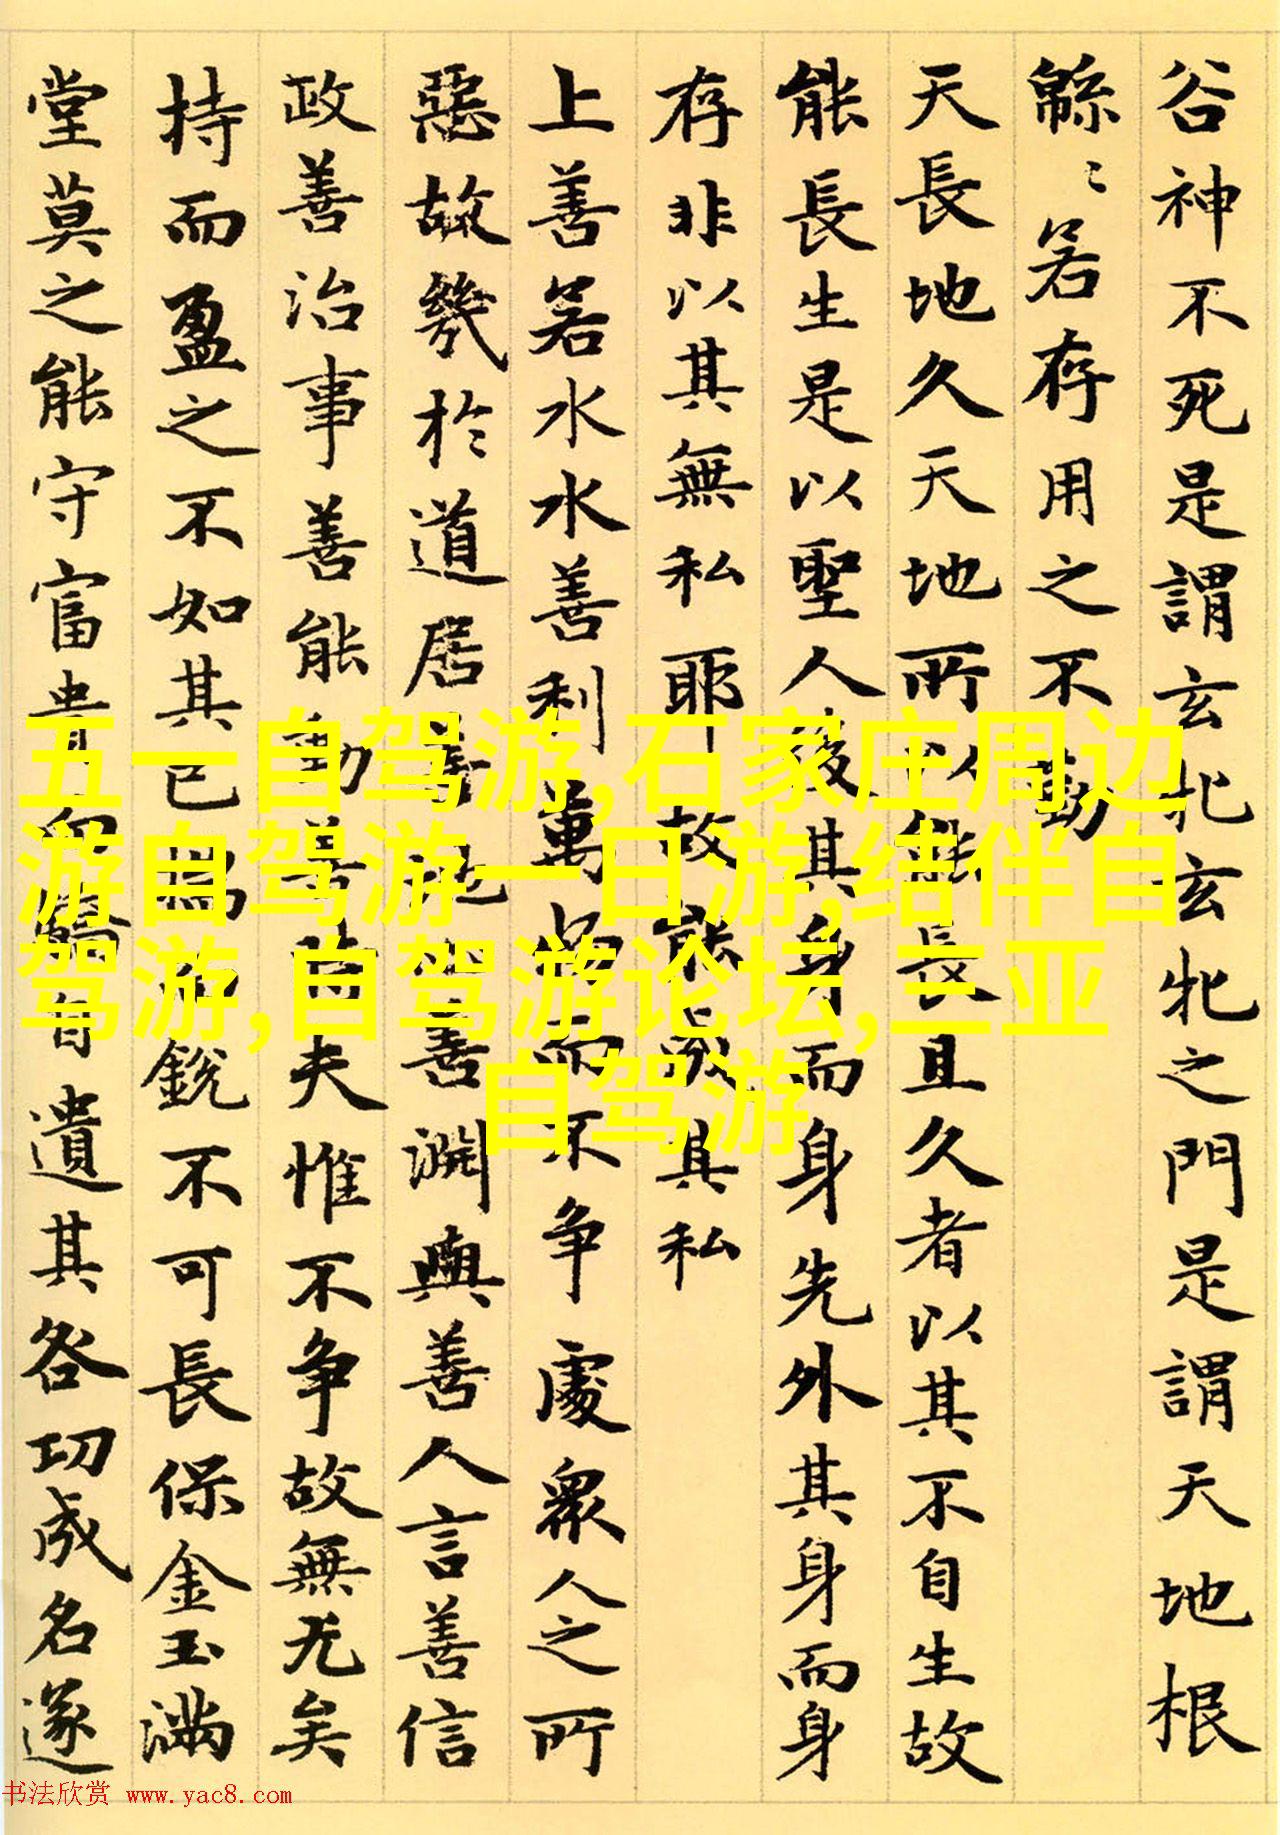 谷神不死是謂玄牝玄牝之門是謂天地根
緜〻若存用之不勤
天長地久天地所以能長且久者以其不自生故
能長生是以聖人後其身而身先外其身而身
存非以其無私耶故能成其私
上善若水水善利萬物而不争處衆人之所
惡故幾於道居善地心善淵與善人言善信
政善治事善能動善時夫惟不争故無尤矣
持而盈之不如其已揣而銳不可長保金玉滿
堂莫之能守富貴而驕自遺其咎功成名遂
五一自驾游,石家庄周边
游自驾游一日游,结伴自
驾游,自驾游论坛,三亚
自驾游
书法欣赏 www.yac8.com